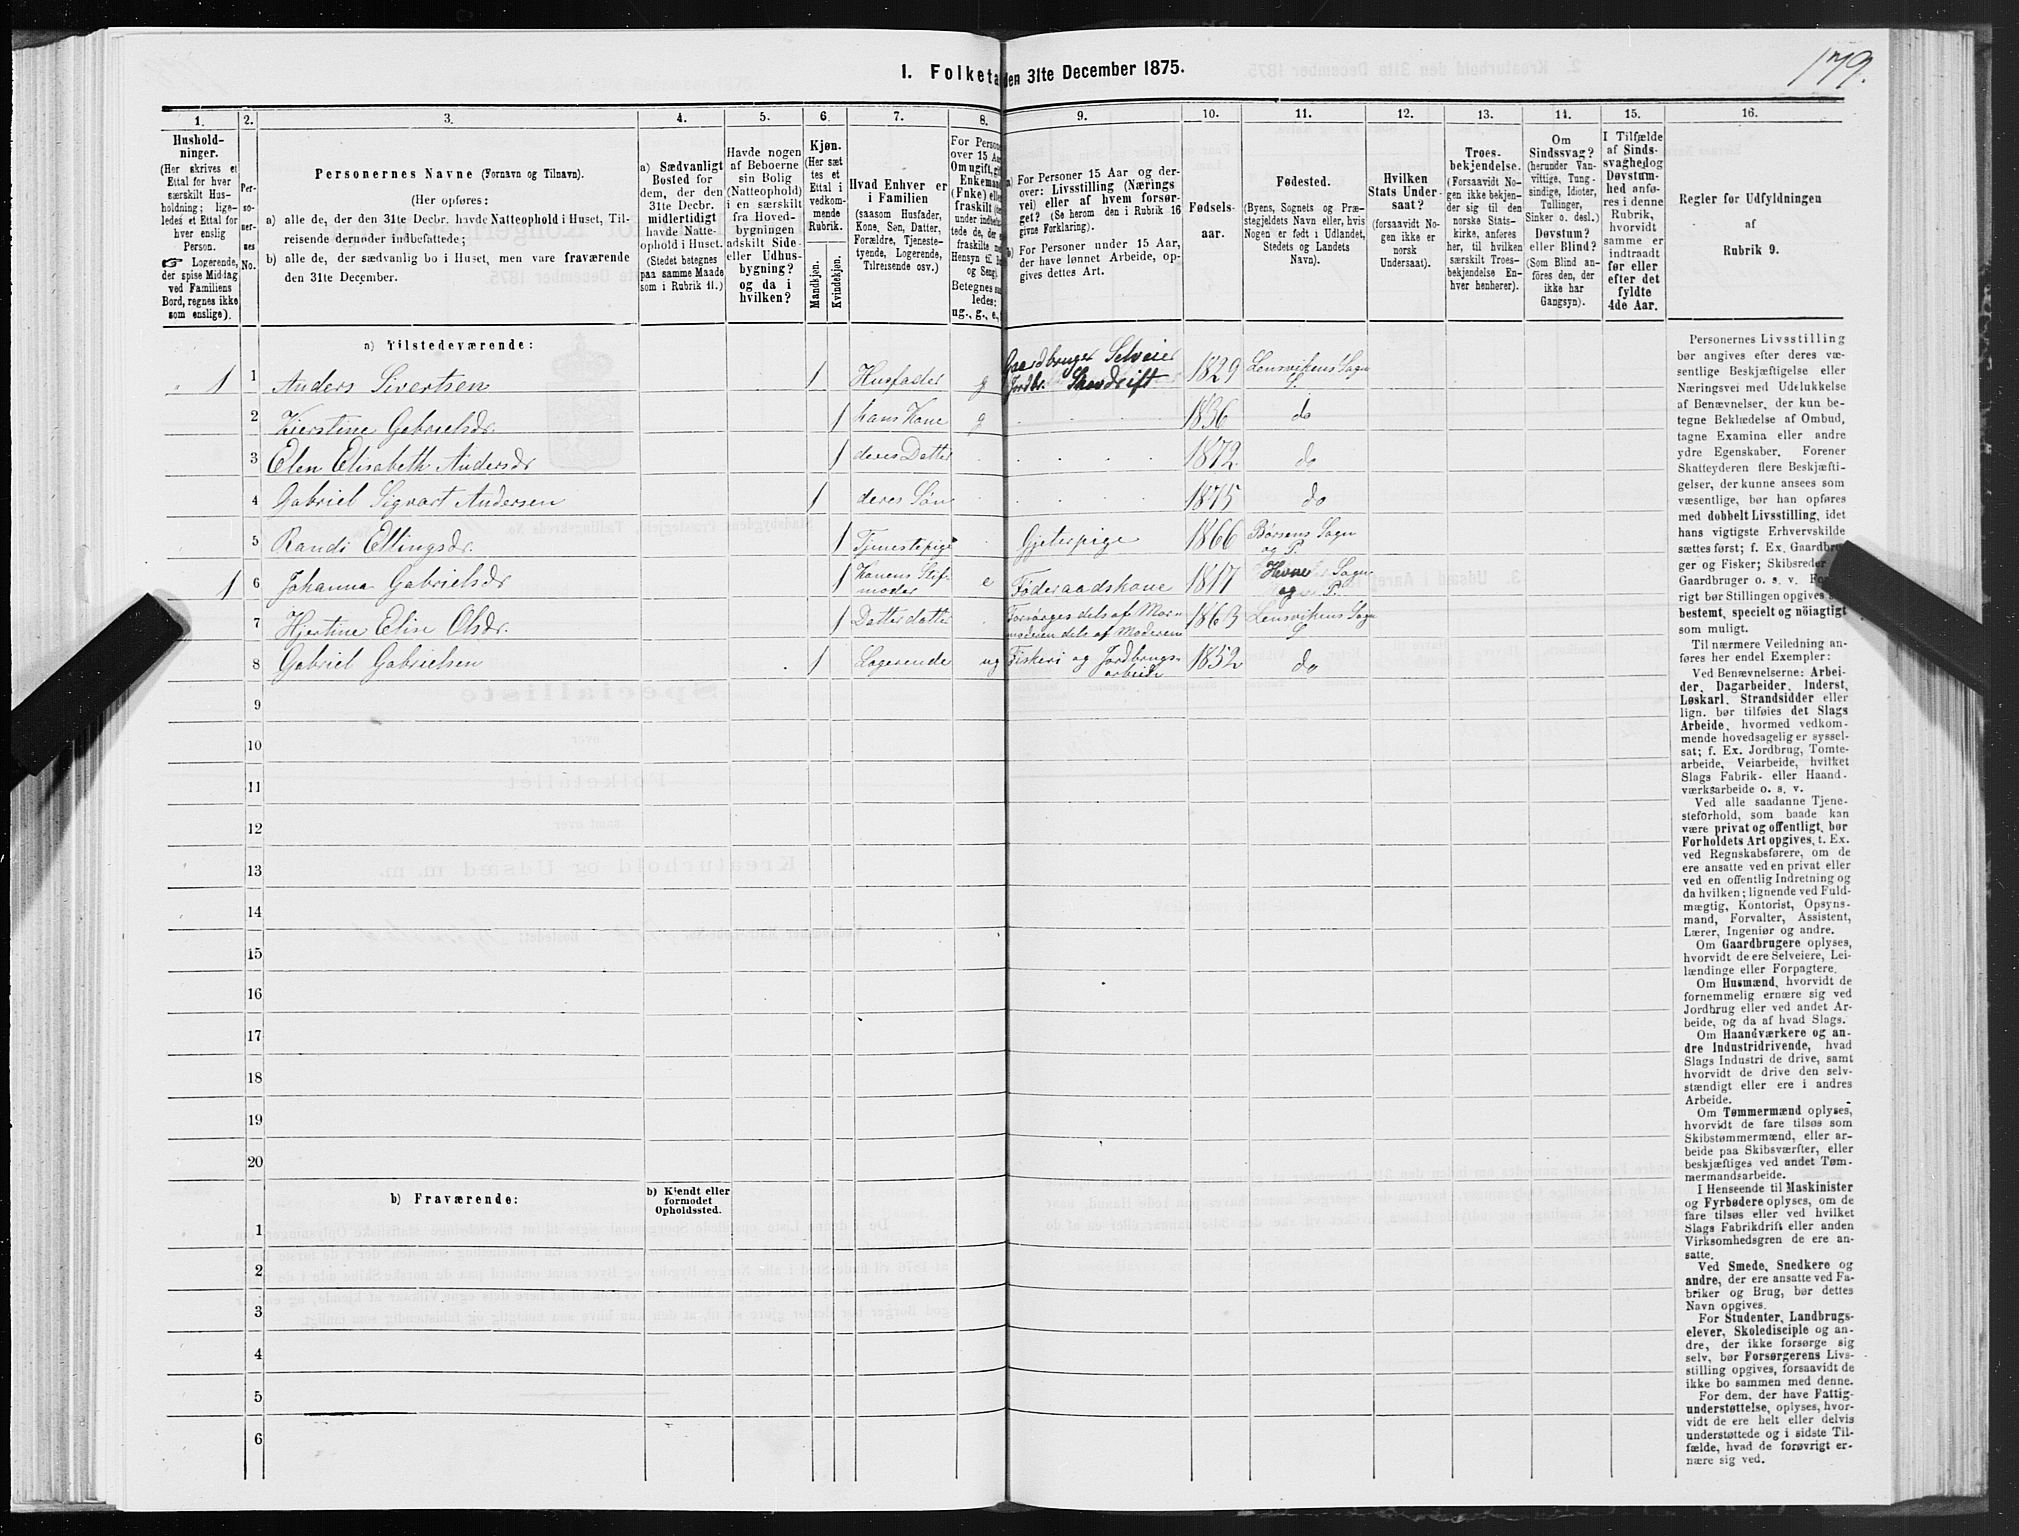 179.
I. Folketa
den 31te December 1875.
1. 2. 3. 4. 5. 6. 7. 8. 9. 10. 11. 12. 13. 14. 15. 16.
Hushold-
ninger.
(Her skrives et
Ettal for hver
særskilt Hus-
holdning; lige-
ledes et Ettal for
hver enslig
Person.
☞ Logerende,
der spise Middag
ved Familiens
Bord, regnes ikke
som enslige).
Per-
so-
ner-
nes
No.
Personernes Navne (Fornavn og Tilnavn).
(Her opføres:
a) alle de, der den 31te Decbr. havde Natteophold i Huset, Til-
reisende derunder indbefattede;
b) alle de, der sædvanlig bo i Huset, men vare fraværende
den 31te December.
a) Sædvanligt
Bosted for
dem, der den
31te Decbr.
midlertidigt
havde Natte-
ophold i Huset.
(Stedet betegnes
paa samme Maade
som i Rubrik 11.)
Havde nogen
af Beboerne
sin Bolig
(Natteophold)
i en særskilt
fra Hoved-
bygningen
adskilt Side-
eller Udhus-
bygning?
og da i
hvilken?
Kjøn.
(Her sæt-
tes et
Ettal i
vedkom-
mende
Rubrik.
Mandkjøn.
Kvindekjøn.
Hvad Enhver er
i Familien
(saasom Husfader,
Kone, Søn, Datter,
Forældre, Tjeneste-
tyende, Logerende,
Tilreisende osv.)
For Person
over 15 Aa
Om ugift, gif
Enkeman
(Fnke) elle
fraskilt (de
under indbefat
tede de, de
fraskilte
Hensyn til B
og Seng).
Betegnes saa
ledes:
ug., g., e.,
a) For Personer 15 Aar og der-
over: Livsstilling (Nærings
vei) eller af hvem forsør-
get? (Se herom den i Rubrik 16
givne Forklaring).
b) For Personer under 15 Aar,
der have lønnet Arbeide, op-
gives dettes Art.
Fødsels-
aar.
Fødested.
(Byens, Sognets og Præ-
stegjeldets Navn eller, hvis
Nogen er født i Udlandet,
Stedets og Landets
Navn).
Hvilken
Stats Under-
saat?
(forsaavidt No-
gen ikke er
norsk
Undersaat).
Troes-
bekjendelse.
(Forsaavidt No-
gen ikke bekjen-
der sig til den
norske Stats-
kirke, anføres
her, til hvilken
særskilt Troes-
bekjendelse En-
hver henhører).
Om
Sindssvag?
(herunder Van-
vittige, Tung-
sindige, Idioter,
Tullinger,
Sinker o. desl.)
Døvstum?
eller Blind?
(Som Blind an-
føres den, der
ikke har
Gangsyn).
I Tilfælde
af Sinds-
svaghed og
Døvstum-
hed anfø-
res i denne
Rubrik,
hvorvidt
samme er
indtraadt
før eller
efter det
fyldte
4de Aar.
Regler for Udfyldningen
af
Rubrik 9.
a) Tilstedeværende:
1 1 Anders Sivertsen 1 Husfader g Gaardbruger Selveier Jordbr. Skovdrift 1829 Lensvikens Sogn S.
2 Kjerstine Gabrielsdr. 1 hans Kone g 1836 do
3 Elen Elisabeth Andersdr 1 deres Datter 1872. do
4 Gabriel Sigvart Andersen 1 deres Søn 1875 do
5 Randi Ellingsdr. 1 Tjenestepige Gjeterpige 1866 Børsens Sogn og P.
1 6 Johanna Gabrielsdr 1 Konens Stifmoder e Føderaadskone 1817 Hevne Sogn og P.
7 Hjertine Elin Olsdr. 1 Datterdatter Forsørges dels af Mormoderen dels af Moderen 1863 Lensvikens Sogn S
8 Gabriel Gabrielsen 1 Logerende ug Fiskeri og Jordbrugsarbeide 1852 do
9
10
11
12
13
14
15
16
17
18
19
20
b) Fraværende:
b) Kjendt eller
formodet
Opholdssted.
1
2
3
4
5
6
Personernes Livsstilling
bør angives efter deres væ-
sentlige Beskjæftigelse eller
Næringsvei med Udelukkelse
af Benævnelser, der kun be-
tegne Beklædelse af Ombud,
tagne Examina eller andre
ydre Egenskaber. Forener
Skatteyderen flere Beskjæfti-
gelser, der kunne ansees som
væsentlige, bør han opføres
med dobbelt Livsstilling, idet
hans vigtigste Erhvervskilde
sættes først; f. Ex. Gaardbru-
ger og Fisker; Skibsreder
Gaardbruger o. s. v. For
rigt bør Stillingen opgives
bestemt, specielt og nöiagtigt
som muligt.
Til nærmere Veiledning an-
føres her endel Exempler:
Ved Benævnelserne: Arbei-
der, Dagarbeider, Inderst,
Løskarl, Strandsidder eller
lign. bør tilføies det Slags
Arbeide, hvormed vedkom-
mende hovedsagelig er syssel-
sat; f. Ex. Jordbrug, Tomte-
arbeide, Veiarbeide, hvilket
Slags Fabrik- eller Haand-
værksarbeide o. s. v.
Ved alle saadanne Tjene-
steforhold, som baade kan
være privat og offentligt, bør
Forholdets Art opgives, f. Ex.
ved Regnskabsførere, om de
ere ansatte ved en privat eller
ved en offentlig Indretning og
da hvilken; lignende ved Fuld-
mægtig, Kontorist, Opsyns-
mand, Forvalter, Assistent,
Lærer, Ingeniør og andre.
Om Gaardbrugere oplyses,
hvorvidt de ere Selveiere, Lei-
lændinge eller Forpagtere.
Om Husmænd, hvorvidt de
fornemmelig ernære sig ved
Jordbrug eller ved andet Ar-
beide, og da af hvad Slags.
Om Haandværkere og an-
dre Industridrivende, hvad
Slags Industri de drive, samt
hvorvidt de drive den selv-
stændigt eller ere i andres
Arbeide.
Om Tømmermænd oplyses,
hvorvidt de fare tilsøs som
Skibstømmermænd, eller ar-
beide paa Skibsværfter, eller
beskjæftiges ved andet Tøm-
mermandsarbeide.
I Henseende til Maskinister
og Fyrbødere oplyses, om de
fare tilsøs eller ved hvilket
Slags Fabrikdrift eller anden
Virksomhedsgren de ere an-
satte.
Ved Smede, Snedkere og
andre, der ere ansatte ved Fa-
briker og Brug, bør dettes
Navn opgives.
For Studenter, Landbrugs-
elever, Skoledisciple og an-
dre, der ikke forsørge sig
selv, bør Forsørgerens Livs-
stilling opgives, forsaavidt de
ikke bo sammen med denne.
For dem, der have Fattig-
understøttelse, oplyses, hvor-
vidt de ere helt eller delvis
understøttede og i sidste Til-
fælde, hvad de forøvrigt er-
nære sig ved.